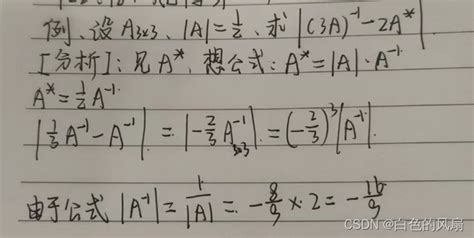 例、设A3×3、|A|=1/2、求|(3A)⁻¹-2A*|
[分析]:见A*,想公式:A*=|A|·A⁻¹
A*=1/2A⁻¹
|1/3A⁻¹-A⁻¹|=|-2/3A⁻¹3×3|=(-2/3)³|A⁻¹|.
由于公式|A⁻¹|=1/|A|=-8/9×2=-16/9
CSDN @白色的风扇